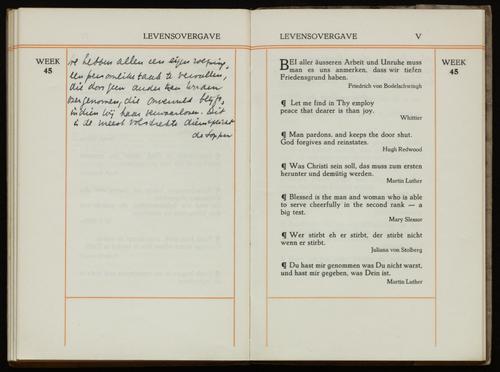 LEVENSOVERGAVE
WEEK
45
We hebben allen een eigen roeping,
een persoonlijke taak te vervullen,
die door geen ander kan worden
overgenomen, die onvervuld blijft,
indien wij haar verwaarlozen. Dit
is de meest volstrekte dienstplicht
LEVENSOVERGAVE V
WEEK
45
BEI aller äusseren Arbeit und Unruhe muss
man es uns anmerken, dass wir tiefen
Friedensgrund haben.
Friedrich von Bodelschwingh
¶ Let me find in Thy employ
peace that dearer is than joy.
Whittier
¶ Man pardons, and keeps the door shut.
God forgives and reinstates.
Hugh Redwood
¶ Was Christi sein soll, das muss zum ersten
herunter und demütig werden.
Martin Luther
¶ Blessed is the man and woman who is able
to serve cheerfully in the second rank — a
big test.
Mary Slessor
¶ Wer stirbt eh er stirbt, der stirbt nicht
wenn er stirbt.
Juliana von Stolberg
¶ Du hast mir genommen was Du nicht warst,
und hast mir gegeben, was Dein ist.
Martin Luther